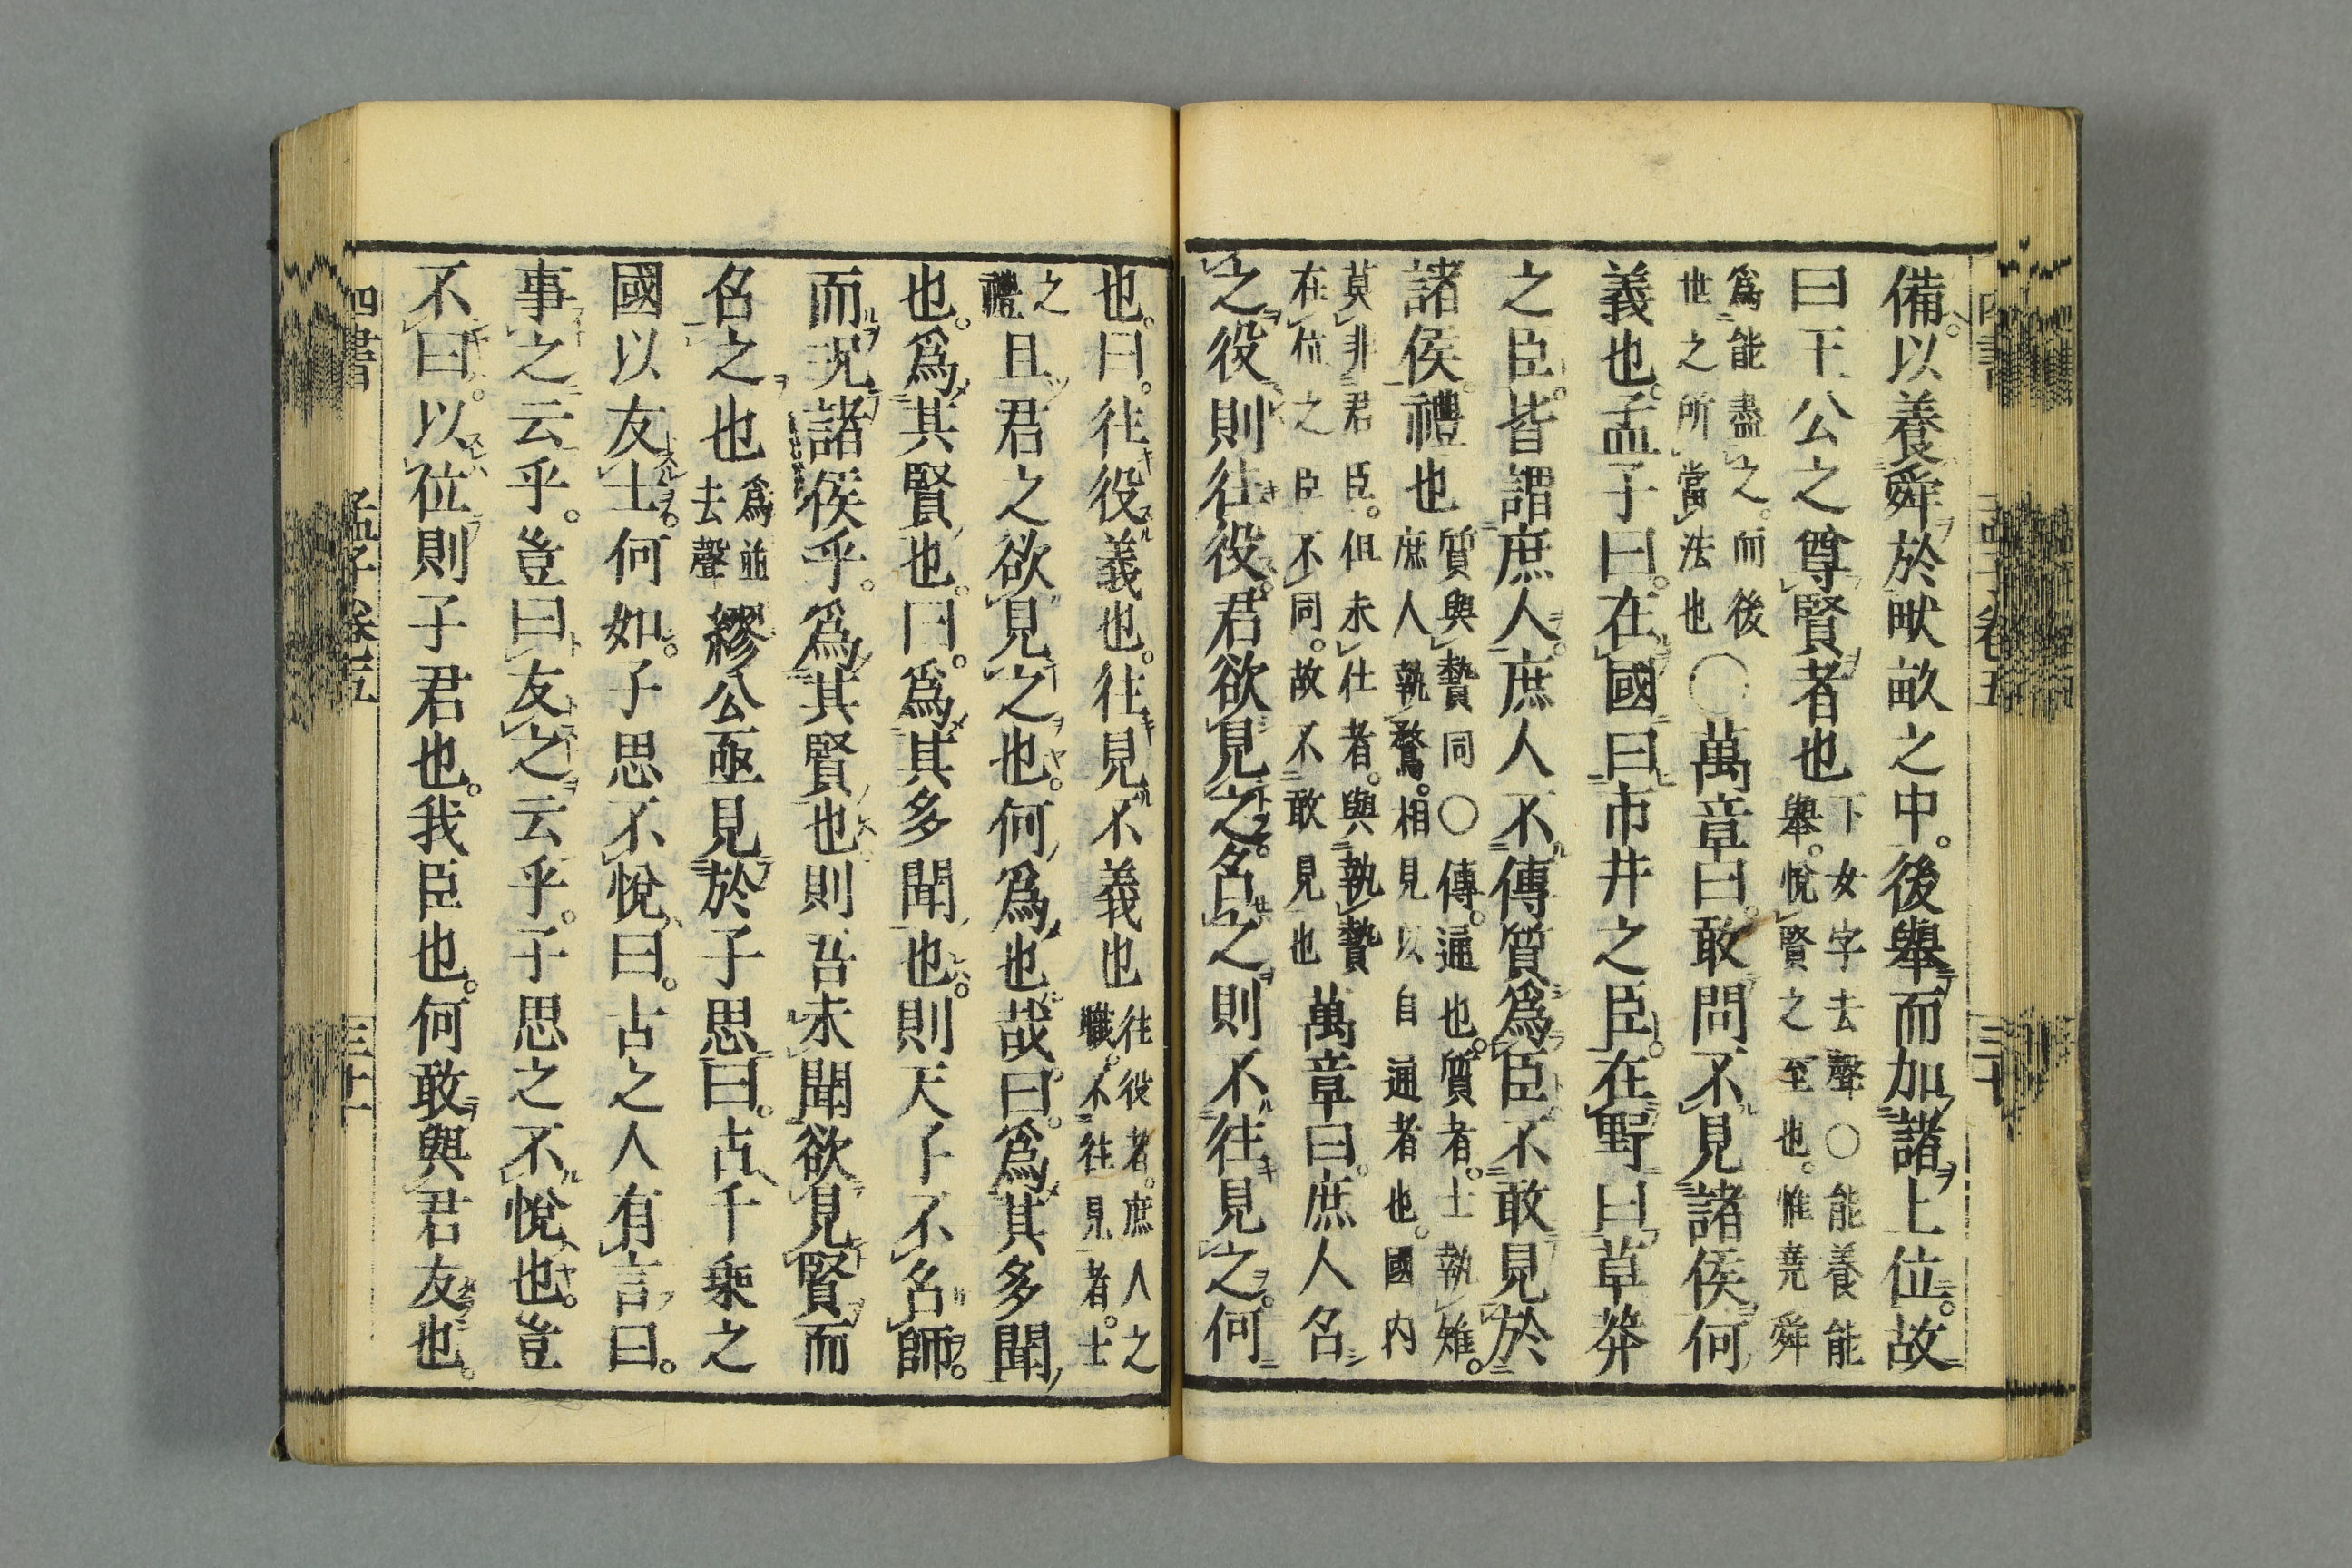 備。以養舜於畎畝之中。後舉而加諸上位。故
曰王公之尊賢者也下女字去聲○能養能舉。悅賢之至也。惟堯舜
爲能盡之。而後世之所當法也○萬章曰。敢問不見諸侯何
義也。孟子曰。在國曰市井之臣。在野曰草莽
之臣。皆謂庶人。庶人不傳質爲臣不敢見於
諸侯禮也質與贄同○傳。通也。質者。士執雉。庶人執鶩。相見以自通者也。國內
莫非君臣。但未仕者。與執贄在位之臣不同。故不敢見也萬章曰。庶人名
之役則往役。君欲見之。名之則不往見之。何
也。曰。往役義也。往見不義也往役者。庶人之職。不往見者。士
之禮且君之欲見之也。何爲也哉。曰。爲其多聞
也。爲其賢也。曰。爲其多聞也。則天子不名師。
而況諸侯乎。爲其賢也則吾未聞欲見賢而
名之也爲並去聲繆公亟見於子思曰。古千乘之
國以友士。何如。子思不悅曰。古之人有言曰。
事之云乎。豈曰友之云乎。子思之不悅也。豈
不曰。以位則子君也。我臣也。何敢與君友也。
四書
孟子卷五
三十一